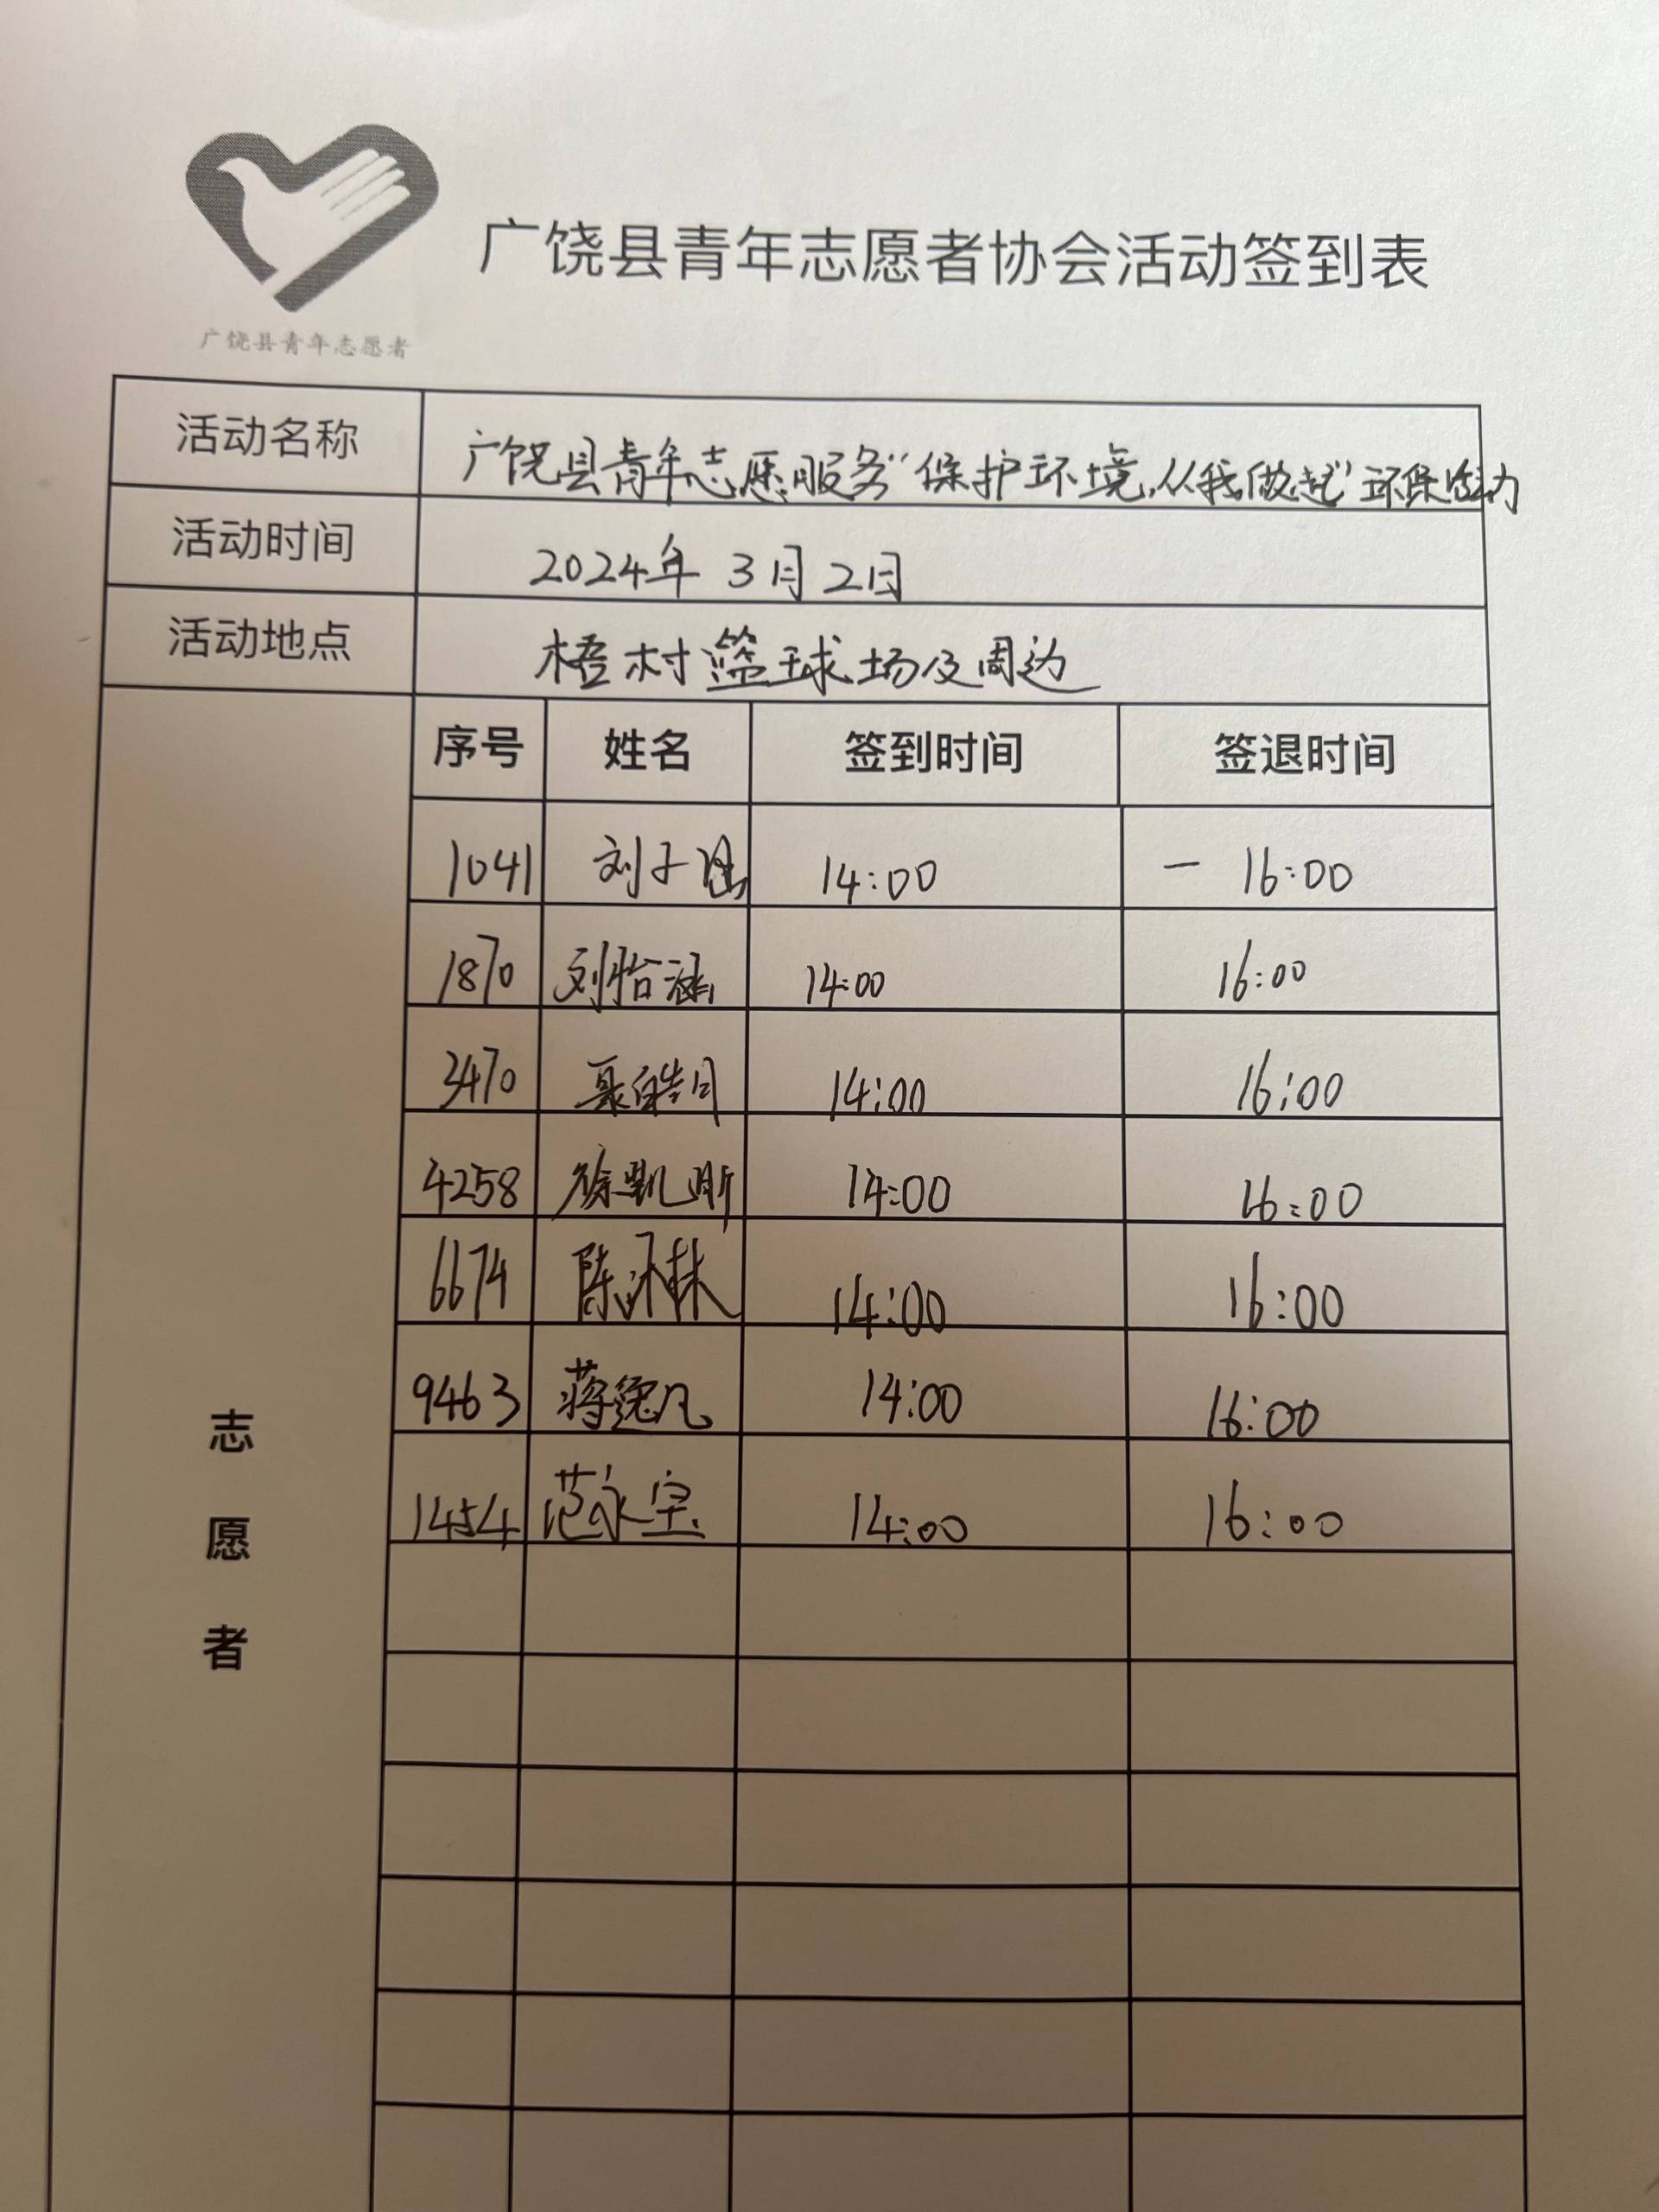 广饶县青年志愿者协会活动签到表
广饶县青年志愿者
活动名称 广饶县青年志愿服务“保护环境,从我做起”环保活动
活动时间 2024年 3月2日
活动地点 梧村篮球场及周边
志愿者
序号 姓名 签到时间 签退时间
1041 刘子涵 14:00 — 16:00
1870 刘怡涵 14:00 16:00
3470 聂皓月 14:00 16:00
4258 徐凯昕 14:00 16:00
6674 陈沐林 14:00 16:00
9463 蒋逸凡 14:00 16:00
1454 范永宝 14:00 16:00